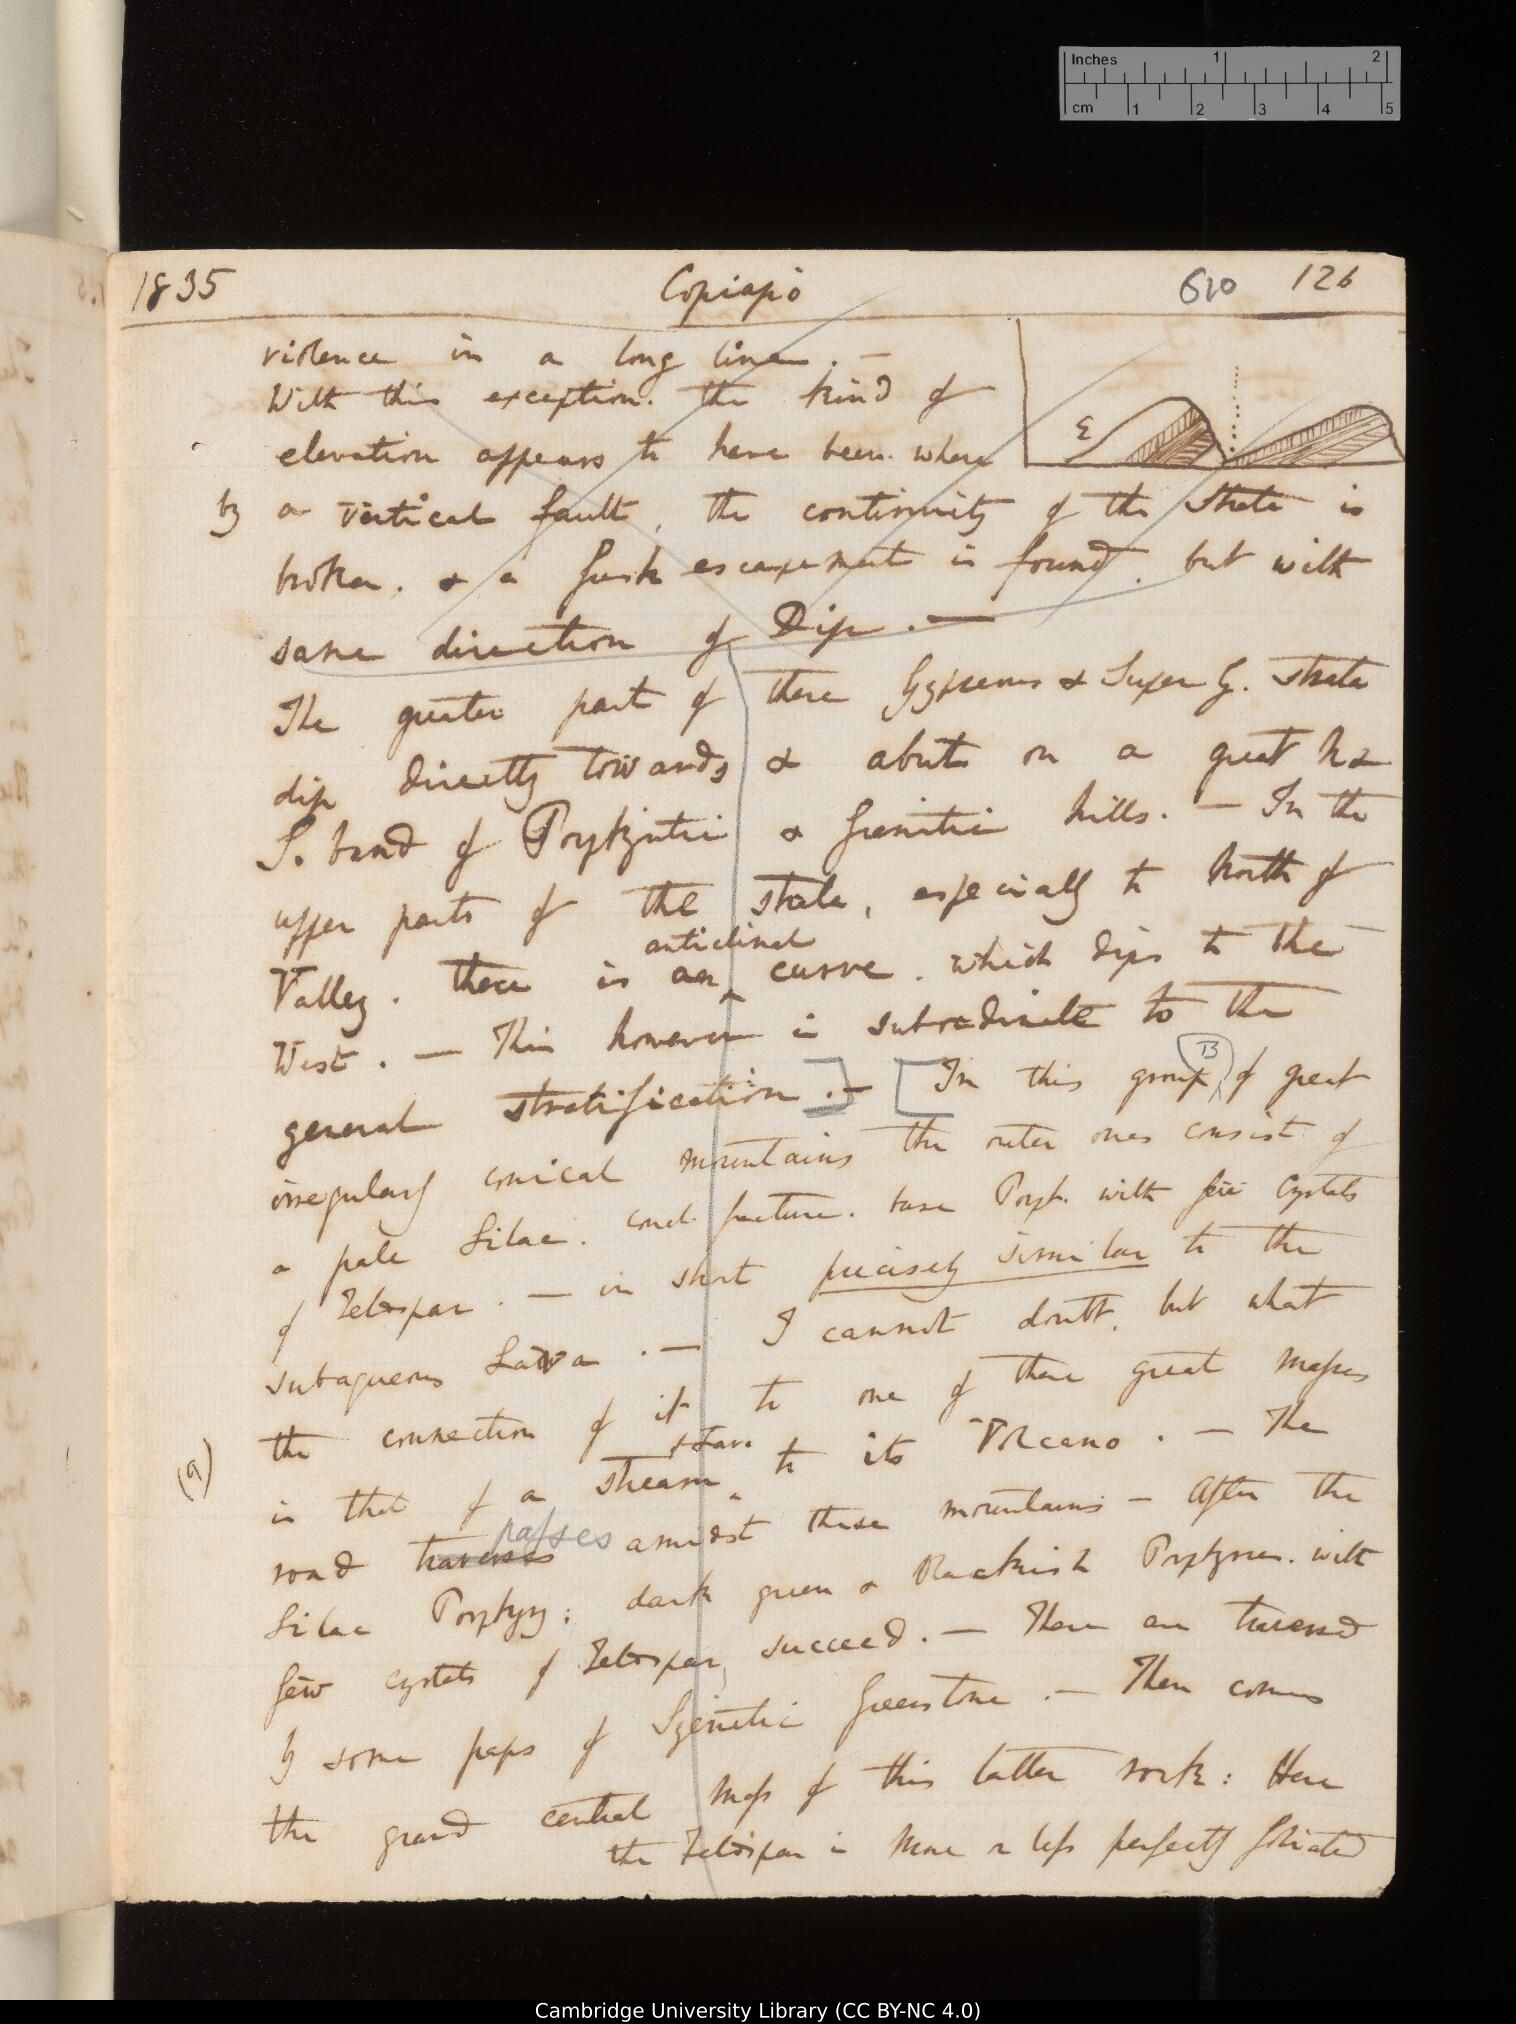 Inches 1 2
cm 1 2 3 4 5
1835 Copiapò 610 126
violence in a long line. —
With this exception. the kind of
elevation appears to have been. where
E
by a vertical fault, the continuity of the strata is
broken. & a fresh escarpement is found, but with
same direction of Dip. —
The greater part of these Gypseous & Super G. strata
dip directly towards & abuts on a great N &
S. band of Porphyritic & Grenitic hills. — In the
upper parts of the strata, especially to North of
anticlinal
Valley. there is an ^ curve. which dips to the
West. — This however is subordinate to the
B
general stratification.] — [In this group, of great
irregularly conical mountains the outer ones consist of
a pale Lilac. conch. fracture. base Porph. with few crystals
of Feldspar. — in short precisely similar to the
subaqueous Lava. — I cannot doubt, but what
the connection of it to one of these great masses
(a)
is that of a stream ^ to its Volcano. — The
passes
road traverses amidst these mountains — After the
Lilac Porphyry; dark green & Blackish Porphyries. with
few crystals of Feldspar, succeed. — These are traversed
by some paps of Syenitic Greenstone. — Then comes
the grand central mass of this latter rock: Here
the Feldspar is more or less perfectly foliated
Cambridge University Library (CC BY-NC 4.0)